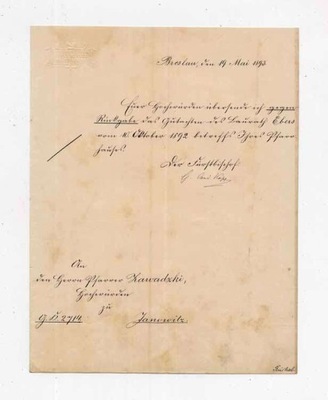 Breslau, den 19 Mai 1893
Euer Hochwürden übersende ich gegen
Rückgabe das Gutachten des Baurath Ebers
vom 18. Oktober 1892 betreffs Ihres Pfarr
hauses.
Der Fürstbischof
An
den Herrn Pfarrer Zawadzki,
Hochwürden
zu
G.K. 2714.
Janowitz.